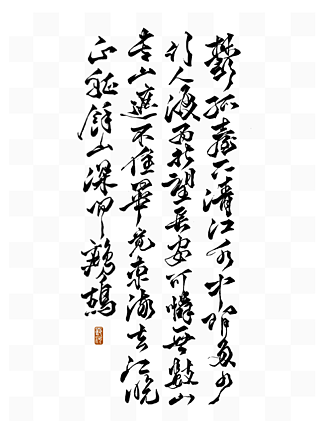 鬱孤臺下清江水中間多少
行人淚西北望長安可憐無數山
青山遮不住畢竟東流去江晚
正愁餘山深聞鷓鴣